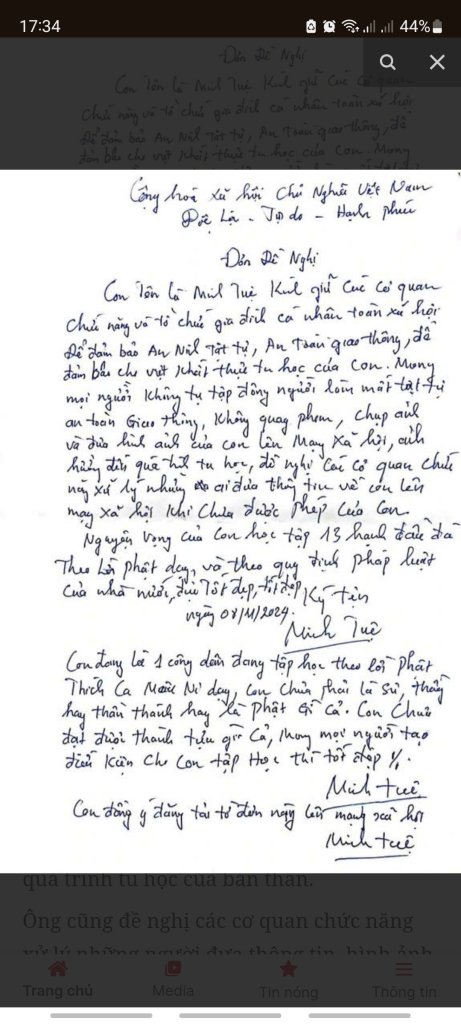 17:34
44%
Đơn Đề Nghị
Con Tên là Minh Tuệ Kính gửi Các Cơ quan
chức năng và tổ chức gia đình cá nhân toàn xã hội
Để đảm bảo An Ninh Trật tự, An Toàn giao thông, để
đảm bảo cho việt khất thực tu học của Con. Mong
Cộng hoà xã hội Chủ Nghĩa Việt Nam
Độc Lập - Tự do - Hạnh phúc
Đơn Đề Nghị
Con Tên là Minh Tuệ Kính gửi Các Cơ quan
chức năng và tổ chức gia đình cá nhân toàn xã hội
Để đảm bảo An Ninh Trật tự, An Toàn giao thông, để
đảm bảo cho việt khất thực tu học của Con. Mong
mọi người Không tụ tập đông người làm mất trật tự
an toàn Giao thông, Không quay phim, chụp ảnh
và đưa hình ảnh của con lên Mạng Xã hội, ảnh
hưởng đến quá trình tu học, đề nghị Các cơ quan chức
năng xử lý những ai đưa thông tin về con lên
mạng xã hội Khi Chưa được phép Của Con.
Nguyện Vọng của Con học tập 13 hạnh đầu đà
Theo lời phật dạy, và theo quy định pháp luật
của nhà nước, đời Tốt đẹp, đạo đẹp
Ký tên
ngày 08/11/2024.
Minh Tuệ
Con đang là 1 công dân đang tập học theo lời Phật
Thích Ca Mâu Ni dạy, con chưa phải là Sư, thầy
hay thần thánh hay là Phật Gì Cả. Con Chưa
đạt được thành tựu gì Cả, mong mọi người tạo
điều Kiện Cho Con tập Học thì tốt đẹp
Minh tuệ
Con đồng ý đăng tải tờ đơn này lên mạng xã hội
Minh tuệ
quá trình tu học của bản thân.
Ông cũng đề nghị các cơ quan chức năng
xử lý những người đưa thông tin, hình ảnh
Trang chủ
Media
Tin nóng
Thông tin